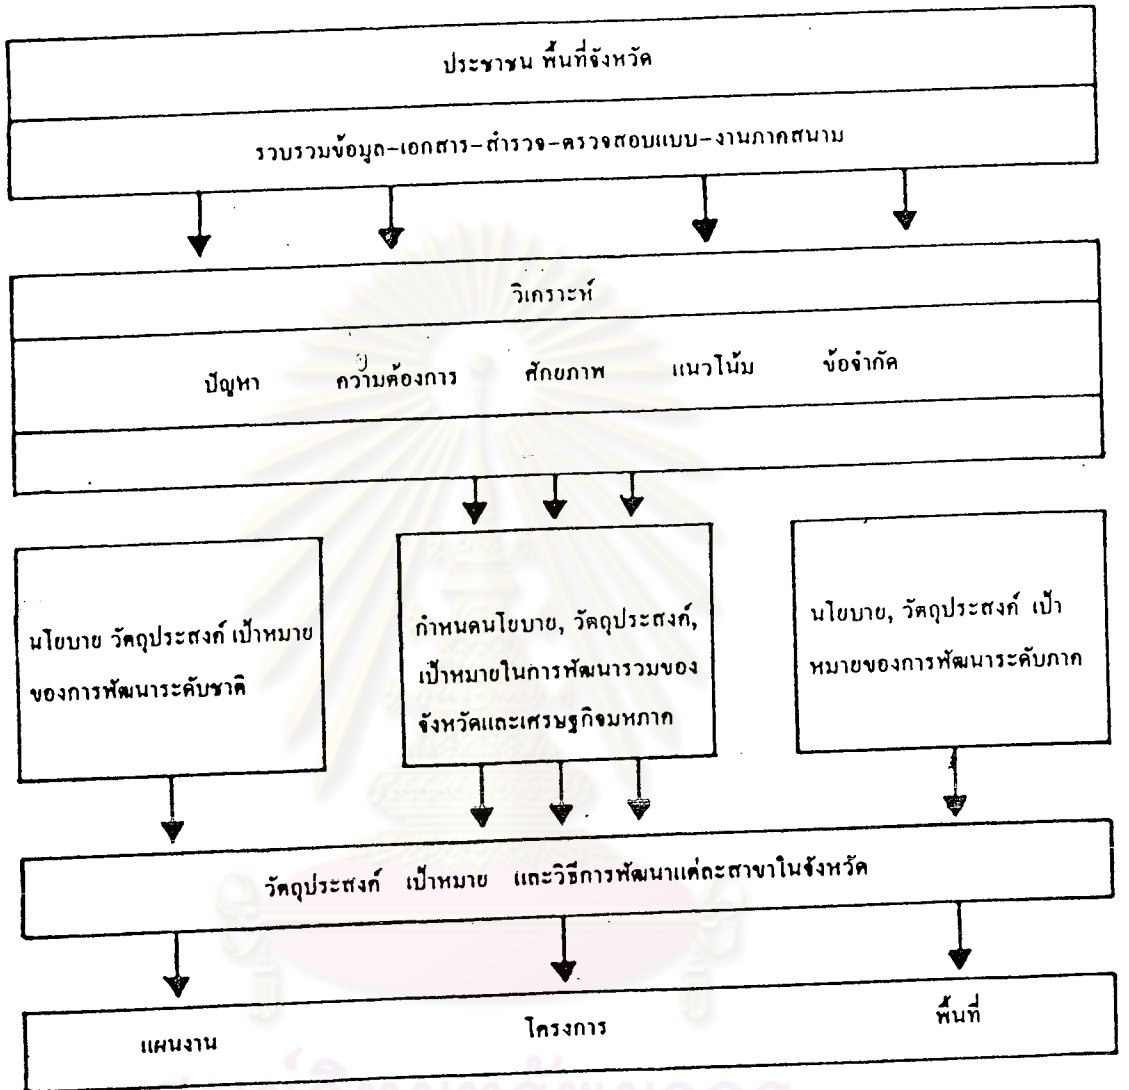 ประชาชน พื้นที่จังหวัด
รวบรวมข้อมูล-เอกสาร-สำรวจ-ตรวจสอบแบบ-งานภาคสนาม
วิเคราะห์
ปัญหา ความต้องการ ศักยภาพ แนวโน้ม ข้อจำกัด
นโยบาย วัตถุประสงค์ เป้าหมาย
ของการพัฒนาระดับชาติ
กำหนดนโยบาย, วัตถุประสงค์,
เป้าหมายในการพัฒนารวมของ
จังหวัดและเศรษฐกิจมหภาค
นโยบาย, วัตถุประสงค์ เป้า
หมายของการพัฒนาระดับภาค
วัตถุประสงค์ เป้าหมาย และวิธีการพัฒนาแต่ละสาขาในจังหวัด
แผนงาน โครงการ พื้นที่